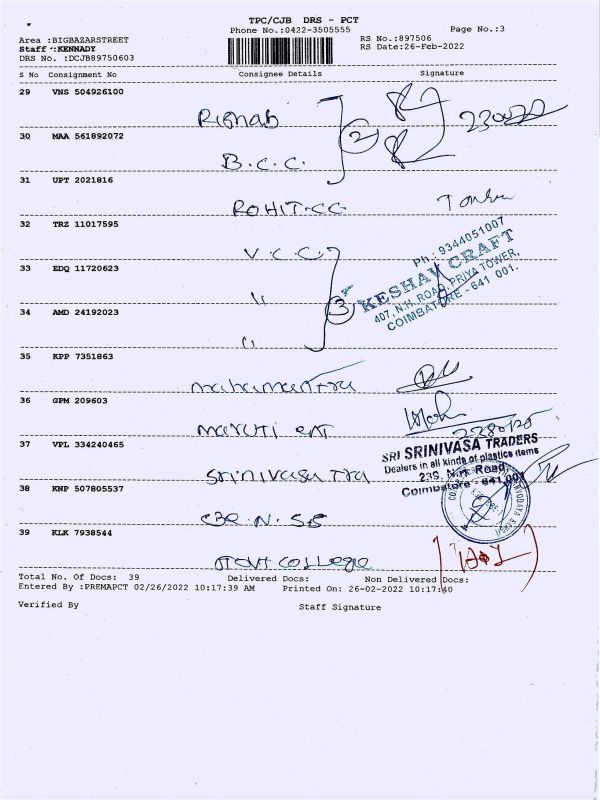 TPC/CJB DRS - PCT
Phone No.:0422-3505555
Page No.:3
Area :BIGBAZARSTREET
RS No.:897506
Staff :KENNADY
RS Date:26-Feb-2022
DRS No. :DCJB89750603
S No Consignment No Consignee Details Signature
29 VNS 504926100
Rishab
30 MAA 561892072
2
B.C.C.
31 UPT 2021816
ROHIT-CC
32 TRZ 11017595
V.C.C.
33 EDQ 11720623
"
3
Ph : 9344051007
KESHAV CRAFT
407, N.H. ROAD, PRIYA TOWER,
COIMBATORE - 641 001.
34 AMD 24192023
"
35 KPP 7351863
36 GPM 209603
Maruti
37 VPL 334240465
SRI SRINIVASA TRADERS
Dealers in all kinds of plastics items
235, N.H. Road,
Coimbatore - 641 001
Srinivasa Tra
38 KNP 507805537
39 KLK 7938544
Govt College
Total No. Of Docs: 39 Delivered Docs: Non Delivered Docs:
Entered By :PREMAPCT 02/26/2022 10:17:39 AM Printed On: 26-02-2022 10:17:40
Verified By Staff Signature